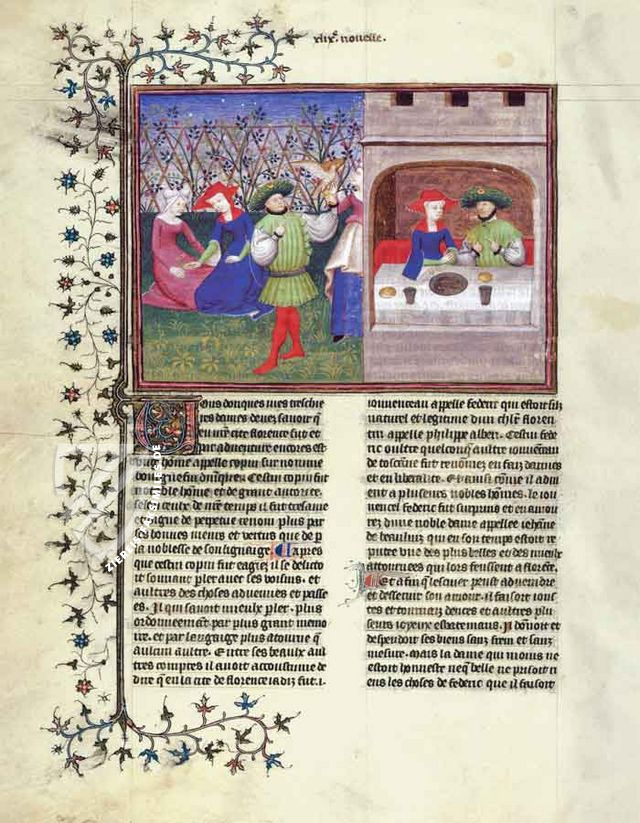 xlix.e nouelle.
Uous donques mes treschie
res dames deuez sauoir q̄
en n̄re cite florence fut et
par aduenture encores est
vng hōme appelle copin
notable hōme et de grant
et digne de perpetue renom plus par
ses bonnes meurs et vertus que de p
la noblesse de son lignaige. Et apres
que cestui copin fut eagie il se delicto
it souuant pler auec ses voisins. et
aultres des choses aduenues et passe
es. Il qui sauoit mieulx pler. plus
ordonneement par plus grant memo
ire. et par langaige plus atourne q̄
aulcun aultre. Entre ses beaulx aul
tres comptes il auoit accoustume de
dire q̄ en la cite de florence iadiz fut .i.
iouuenceau appelle federic qui estoit filz
naturel et legitime dun chl̄r floren
tin appelle philippe alberi. Cestui fede
ric oultre quelconq̄ aultre iouuēceau
de toscane fut renōmez en faiz darmes
et en liberalite. Et ainsi cōme il adui
ent a pluseurs nobles hōmes. le iou
uencel federic fut surpuns et en amou
rez dune noble dame appellee iehāne
de beaulieu qui en son temps estoit re
putee vne des plus belles et des mieulx
attournees qui lors feussent a florēce.
Et afin q̄ lesauer peust aduendre
et desseruir son amour. il faisoit ious
tes et tournais dences et aultres plu
seurs ioyeux esbatemans. Il dōnoit et
despendoit ses biens sanz frem et sanz
mesure. Mais la dame qui moins ne
estoit honneste neq̄ belle ne prisoit ri
ens les choses de federic que il faisoit
ZIERERFACSIMILES.DE